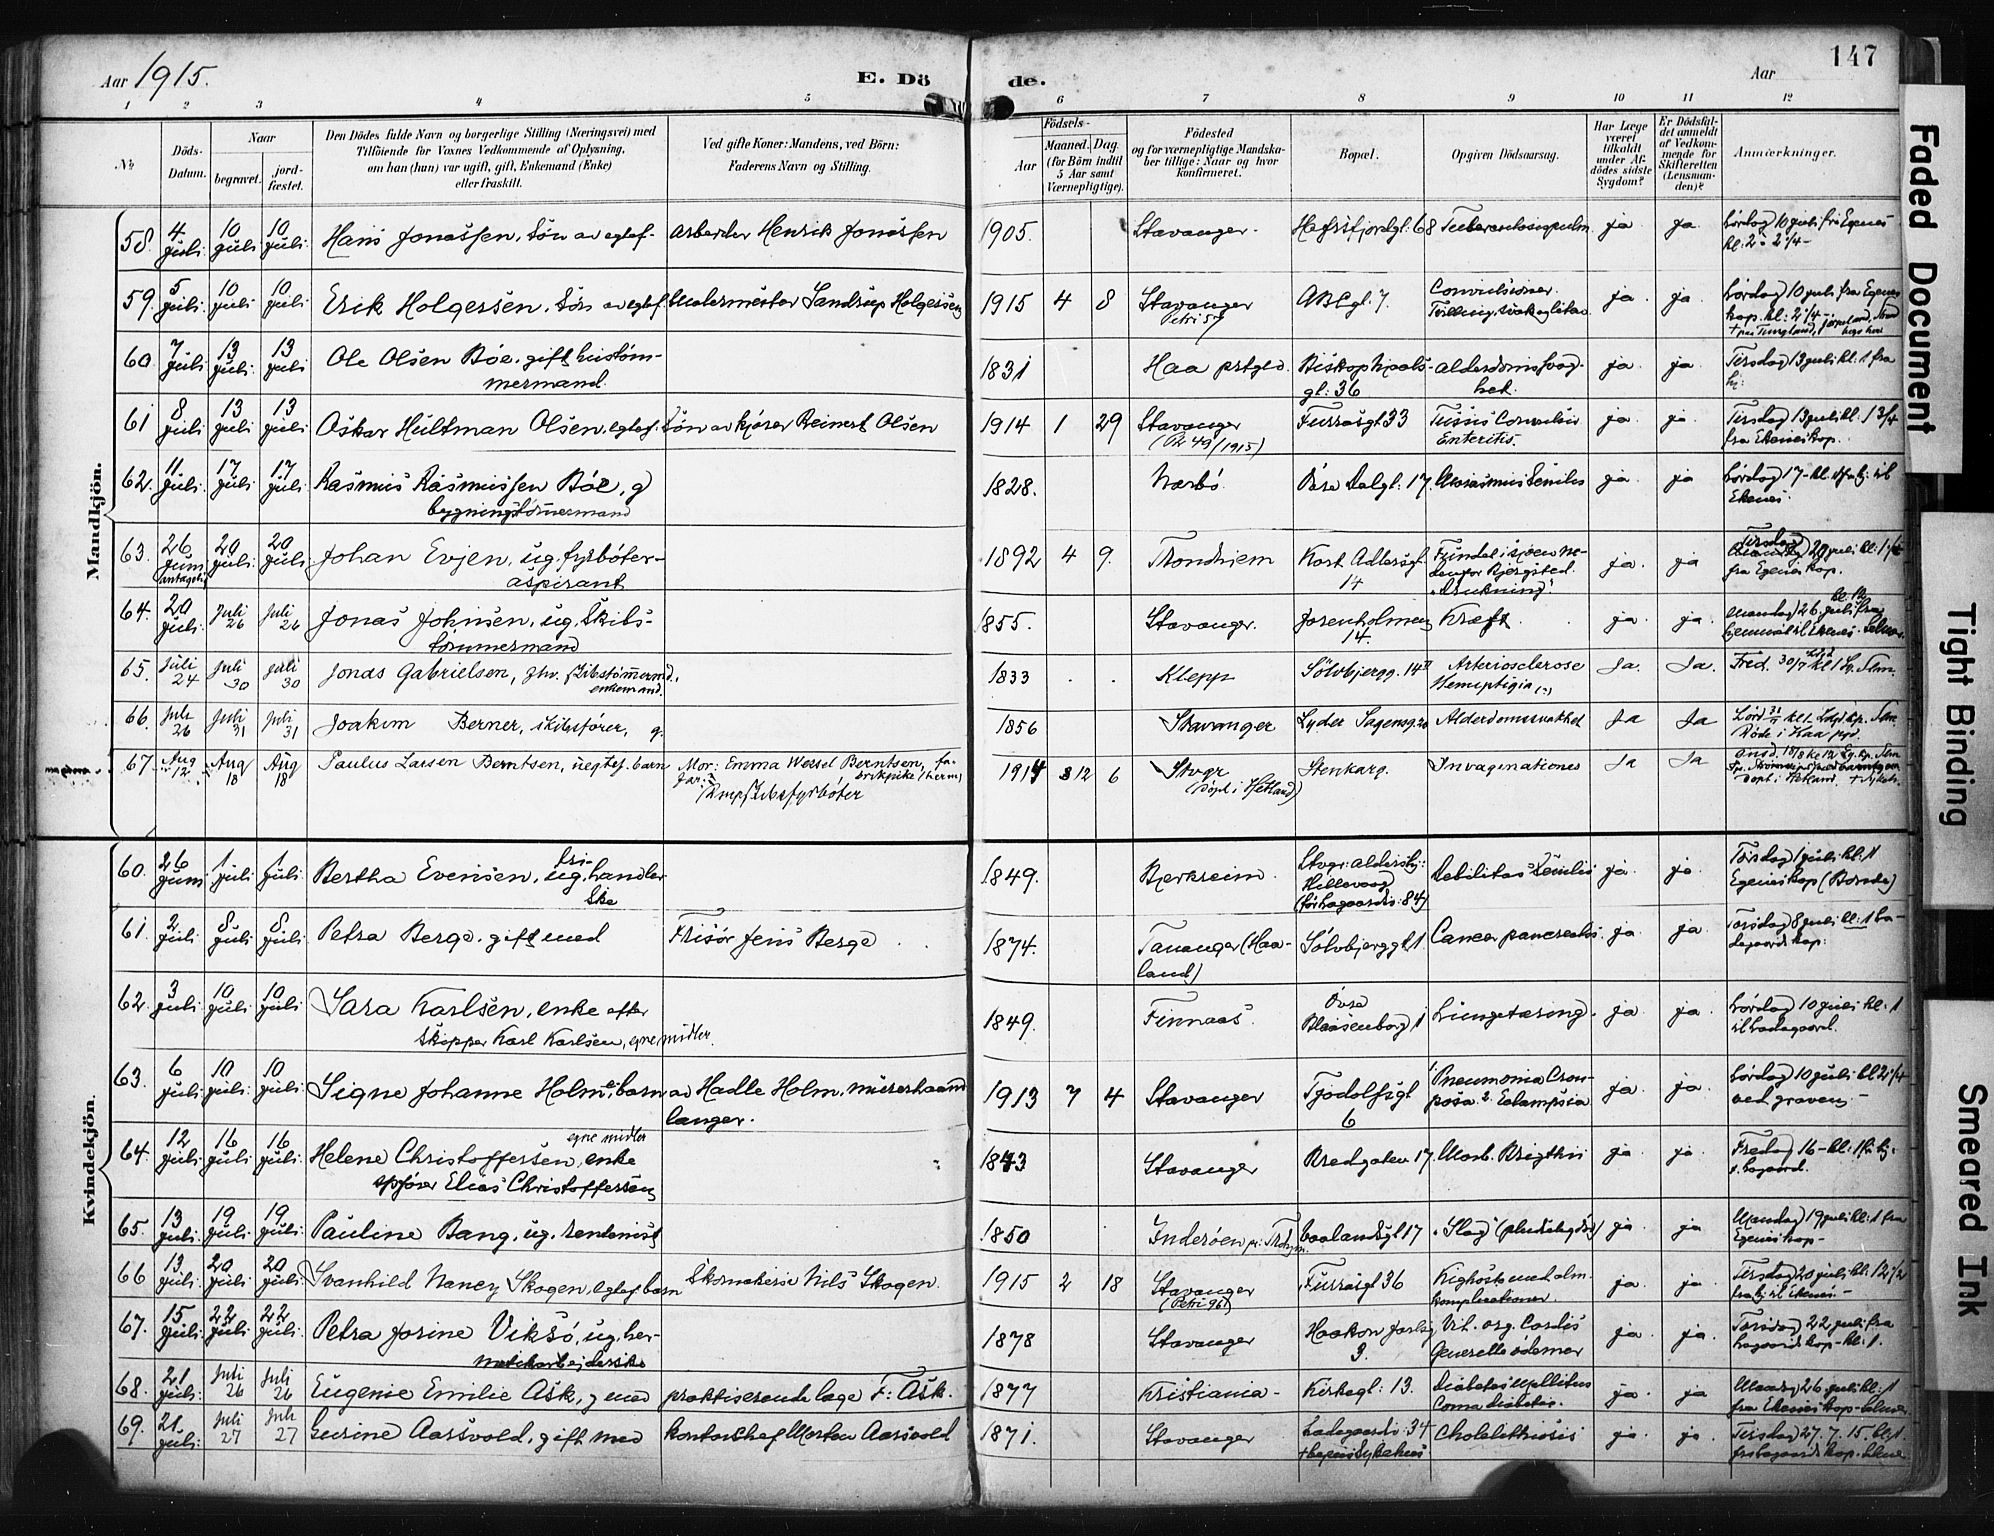 Aar 1915.
E. Dö
de.
Aar
147
1 2 3 4 5 6 7 8 9 10 11 12
No.
Döds-Datum.
Naar
begravet.
jord-fæstet.
Den Dödes fulde Navn og borgerlige Stilling (Næringsvei) med
Tilföiende for Voxnes Vedkommende af Oplysning,
om han (hun) var ugift, gift, Enkemand (Enke)
eller fraskilt.
Ved gifte Koner: Mandens, ved Börn:
Faderens Navn og Stilling.
Födsels-
Aar
Maaned. Dag.
(for Börn indtil
5 Aar samt
Værnepligtige).
Födested
og for værnepligtige Mandska-
ber tillige: Naar og hvor
konfirmeret.
Bopæl.
Opgiven Dödsaarsag.
Har Læge
været
tilkaldt
under Af-
dödes sidste
Sygdom?
Er Dödsfal-
det anmeldt
af Vedkom-
mende for
Skifteretten
(Lensman-
den)?
Anmærkninger.
Mandkjön.
58. 4 juli 10 juli 10 juli Hans Jonassen, Søn av egtef. arbeider Henrik Jonassen 1905. Stavanger. Hafrsfjordgt. 68 Tuberculosis pulm. ja ja Lørdag 10 juli fra Egenes
kl. 2 - 2 1/4 -
59. 5 juli 10 juli 10 juli Erik Holgersen, Søn av egtef. Malermester Sandrup Holgersen 1915 4 8 Stavanger ABCgt. 7 Convulsioner. ja ja Lørdag 10 juli fra Egenes
Petri 57 kap. kl: 2 1/4 -
60. 7 juli 13 juli 13 juli Ole Olsen Bøe, gift hustøm-
mermand. 1831 Haa prstgld. Biskop Nicols-
gt: 36 alderdomssvag-
het. ja ja Tirsdag 13 juli kl. 1 fra
hj:
61 8 juli 13 juli 13 juli Oskar Hultman Olsen, egtef. Søn av kjører Reinert Olsen 1914 1 29 Stavanger Furrasgt 33 Tussis Convulsiv ja ja Tirsdag 13 juli kl. 1 3/4
(Pt 49/1915) Enteritis. fra Ekenes kap.
62. 11 juli 17 juli 17 juli Rasmus Rasmussen Bøe, g
bygningstømmermand 1828. Nærbø. Øvre Dalgt. 17. Marasmus Senilis ja ja Lørdag 17 - kl.
Ekenes.
63. 26 juni antagelig 20 juli 20 juli Johan Evjen, ug. fyrbøter-
aspirant 1892 4 9. Trondhjem Kort Adlersgt. 14 Fundet i sjøen ne-
denfor Bjergsted.
"Drukning". ja ja Tirsdag 20 juli kl. 1 1/2
fra Egenes kap.
64. 20 juli Juli 26 Juli 26 Jonas Johnsen, ug. Skibs-
tømmermand 1855. Stavanger. Jorenholmen 14 Kræft. ja ja Mandag 26. juli fra kl. 12
65. Juli 24 Juli 30 Juli 30 Jonas Gabrielsen, fhv. skibstømmermd.,
enkemand. 1833 Klepp Sølvbjergg. 14 II Arteriosclerose
Hemiplegia (?) Ja Ja. Fred. 30/7 kl 1
66. Juli 26 Juli 31 Juli 31 Joakim Berner, skibsfører, g. 1856 Stavanger Lyder Sagensg. Alderdomssvakhet Ja Ja Lørd 31/7 kl 1.
Døde i Haa pgd.
67. Aug 12. Aug 18 Aug 18 Paulus Larsen Berntsen, uegtef. barn Mor: Emma Wessel Berntsen, fa-
brikpike
Dampskibsfyrbøter 1914 12 6 Stvgr
(Døpt i Hetland) Stenkarg. Invaginationes Ja Ja onsd. 18/8 kl 12
Døpt i Hetland. + Sykeh.
Kvindekjön.
60. 26 juni 1 juli 1 juli Bertha Evensen, ug. handler
ske 1849. Bjerkreim. Stvgr: aldershj:
Hillevaag Debilitas Senilis ja ja. Torsdag 1 juli kl: 1
Egenes kap
61. 2 juli 8 juli 8 juli Petra Berge, gift med Frisør Jens Berge 1874. Tananger (Haa-
land) Sølvbjerggt 1 Cancer pancreatis ja ja. Torsdag 8 juli kl: 1 La-
degaards kap:
62. 3 juli 10 juli 10 juli Sara Karlsen, enke efter
skipper Karl Karlsen, egne midler. 1849. Finnaas. Øvre
Blaasenborg 1 Lungetæring. ja ja. Lørdag 10 juli kl. 1
til Ladegaard.
63. 6 juli 10 juli 10 juli Signe Johanne Holm, e. barn av Hadle Holm, murerhaand
langer. 1913 7 4 Stavanger Tjodolfsgt
6 1. Pneumonia Crou-
posa 2. Eclampsia ja ja. Lørdag 10 juli kl 2 1/4
ved graven. -
64. 12 juli 16 juli 16 juli egne midler
Helene Christoffersen, enke
Elias Christoffersen 1843 Stavanger Bredgaten 17. Morb. Brigthii ja ja. Fredag 16 - kl.
65. 13 juli. 19 juli. 19 juli. Pauline Bang, ug. rentenist 1850 Inderøen pr: Trhjm. Vaalandsgt 17 "Slag" (pludselig død) ja ja Mandag 19 juli kl. 1 fra
Egenes kap -
66 13 juli. 20 juli. 20 juli. Svanhild Nancy Skogen, egtef. barn Skomakersv. Nils Skogen. 1915 2 18 Stavanger
(Petri 96) Furrasgt 36 Kighoste med olm.
komplicationer. ja ja. Tirsdag 20 juli kl. 12 1/2
fra hj til Ekenes. -
67. 15 juli. 22 juli. 22 juli. Petra Josine Viksø, ug. her-
metikarbejderske 1878 Stavanger Haakon Jarlsg
3. Vit. org. Cordis
Generelle ødemer ja ja. Torsdag 22 juli fra
Lagaards kap - kl. 1.
68. 21 juli. Juli 26 Juli 26 Eugenie Emilie Ask, g med praktiserende læge F: Ask. 1877 Kristiania - Kirkegt: 13. Diabetes Mellitus
Coma diabetic. ja ja Mandag 26 juli kl. 1
fra Ekenes kap -
69. 21 juli. Juli 27 Juli 27 Gurine Aarsvold, gift med kontorchef Morten Aarsvold 1871. Stavanger Ladegaardsv. 34 Cholelithiasis ja ja. Tirsdag 27. 7. 15. kl. 1.
fra Lagaards kap.
Faded Document
Tight Binding
Smeared Ink